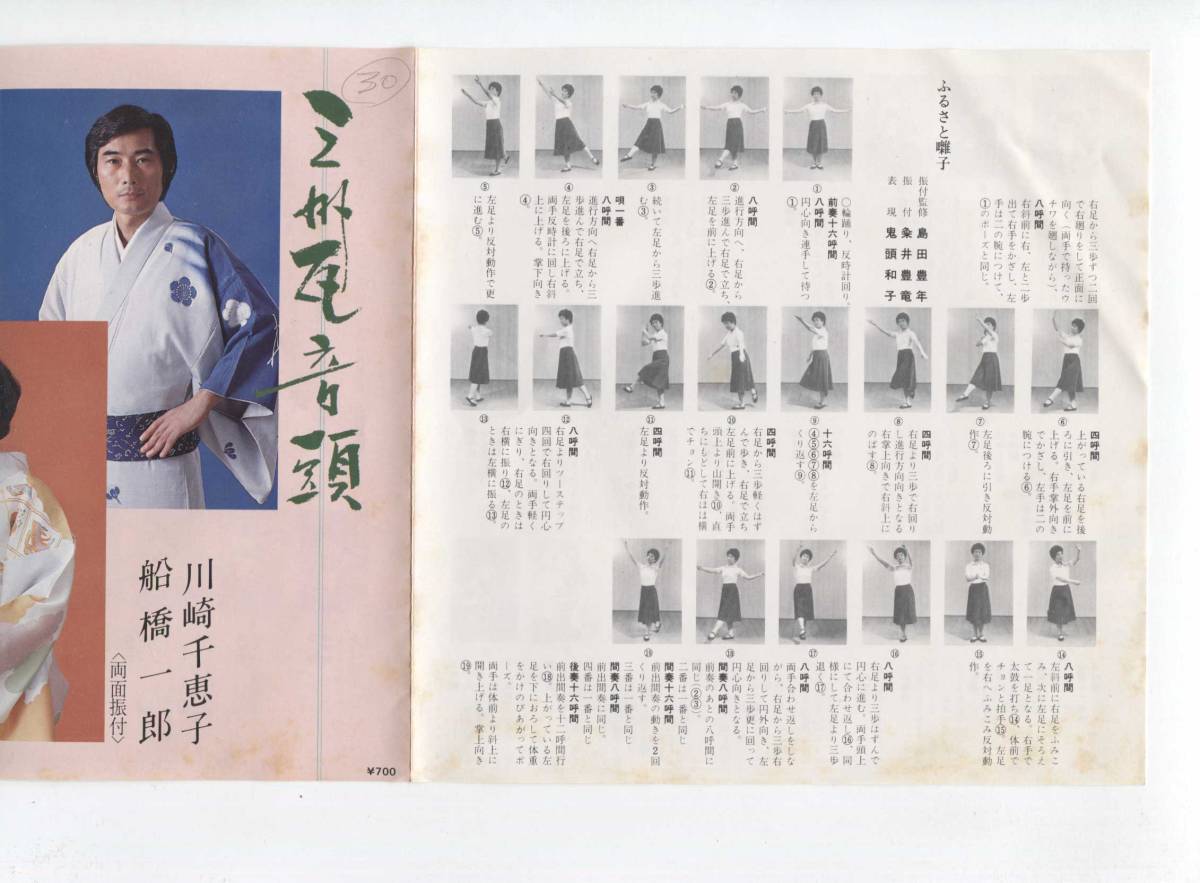 30
三州瓦音頭
川崎千恵子
船橋一郎
〈両面振付〉
¥700
ふるさと囃子
振付監修 島田豊年
振付 粂井豊竜
表現 鬼頭和子
〇輪踊り、反時計回り。
前奏十六呼間
八呼間
円心向き連手して待つ
①。
①
八呼間
進行方向へ、右足から
三歩進んで右足で立ち、
左足を前に上げる②。
②
続いて左足から三歩進
む③。
③
唄一番
八呼間
進行方向へ右足から三
歩進んで右足で立ち、
左足を後ろに上げる。
両手反時計に回し右斜
上に上げる。掌下向き
④。
④
左足より反対動作で更
に進む⑤。
⑤
四呼間
上がっている右足を後
ろに引き、左足を前に
上げる。右手掌外向き
でかざし、左手は二の
腕につける⑥。
⑥
左足後ろに引き反対動
作⑦。
⑦
四呼間
右足より三歩で右回り
し進行方向向きとなる
右掌上向きで右斜上に
のばす⑧。
⑧
十六呼間
④⑤⑥⑦⑧を左足から
くり返す⑨。
⑨
四呼間
右足から三歩軽くはず
んで歩き、右足で立ち
左足前に上げる。両手
頭上より山開き⑩、直
ちにもどして右はは横
でチョン⑪。
⑩
四呼間
左足より反対動作。
⑪
八呼間
右足よりツーステップ
四回で右回りして円心
向きとなる。両手軽く
にぎり、右足のときは
右横に振り⑫、左足の
ときは左横に振る⑬。
⑫
⑬
八呼間
左斜前に右足をふみこ
み、次に左足にそろえ
て一足となる。右手で
太鼓を打ち⑭、体前で
チョンと拍手⑮。左足
を右へふみこみ反対動
作。
⑭
⑮
八呼間
右足より三歩はずんで
円心に進む。両手頭上
にて合わせ返し⑯、同
様にして左足より三歩
退く⑰。
⑯
八呼間
両手合わせ返しをしな
がら、右足から三歩右
回りして円外向き、左
足から三歩更に回って
円心向きとなる。
⑰
間奏八呼間
前奏のあとの八呼間に
同じ（②③）。
二番は一番と同じ
⑱
間奏十六呼間
前出間奏の動きを２回
くり返す。
三番は一番と同じ
間奏八呼間
前出間奏に同じ。
四番は一番と同じ
後奏十六呼間
前出間奏を十二呼間行
い⑱。上がっている左
足を下におろして体重
をかけのびあがってポ
ーズ。
両手は体前より斜上に
開き上げる。掌上向き
⑲。
⑲
右足から三歩ずつ二回
で右廻りをして正面に
向く（両手で待ったウ
チワを廻しながら）、
八呼間
右斜前に右、左と二歩
出て右手をかざし、左
手は二の腕につけて、
①のポーズと同じ。